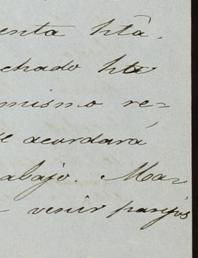 enta htâ.
chado hte
mismo re-
se acordará
abajo. Ma-
venir parejos